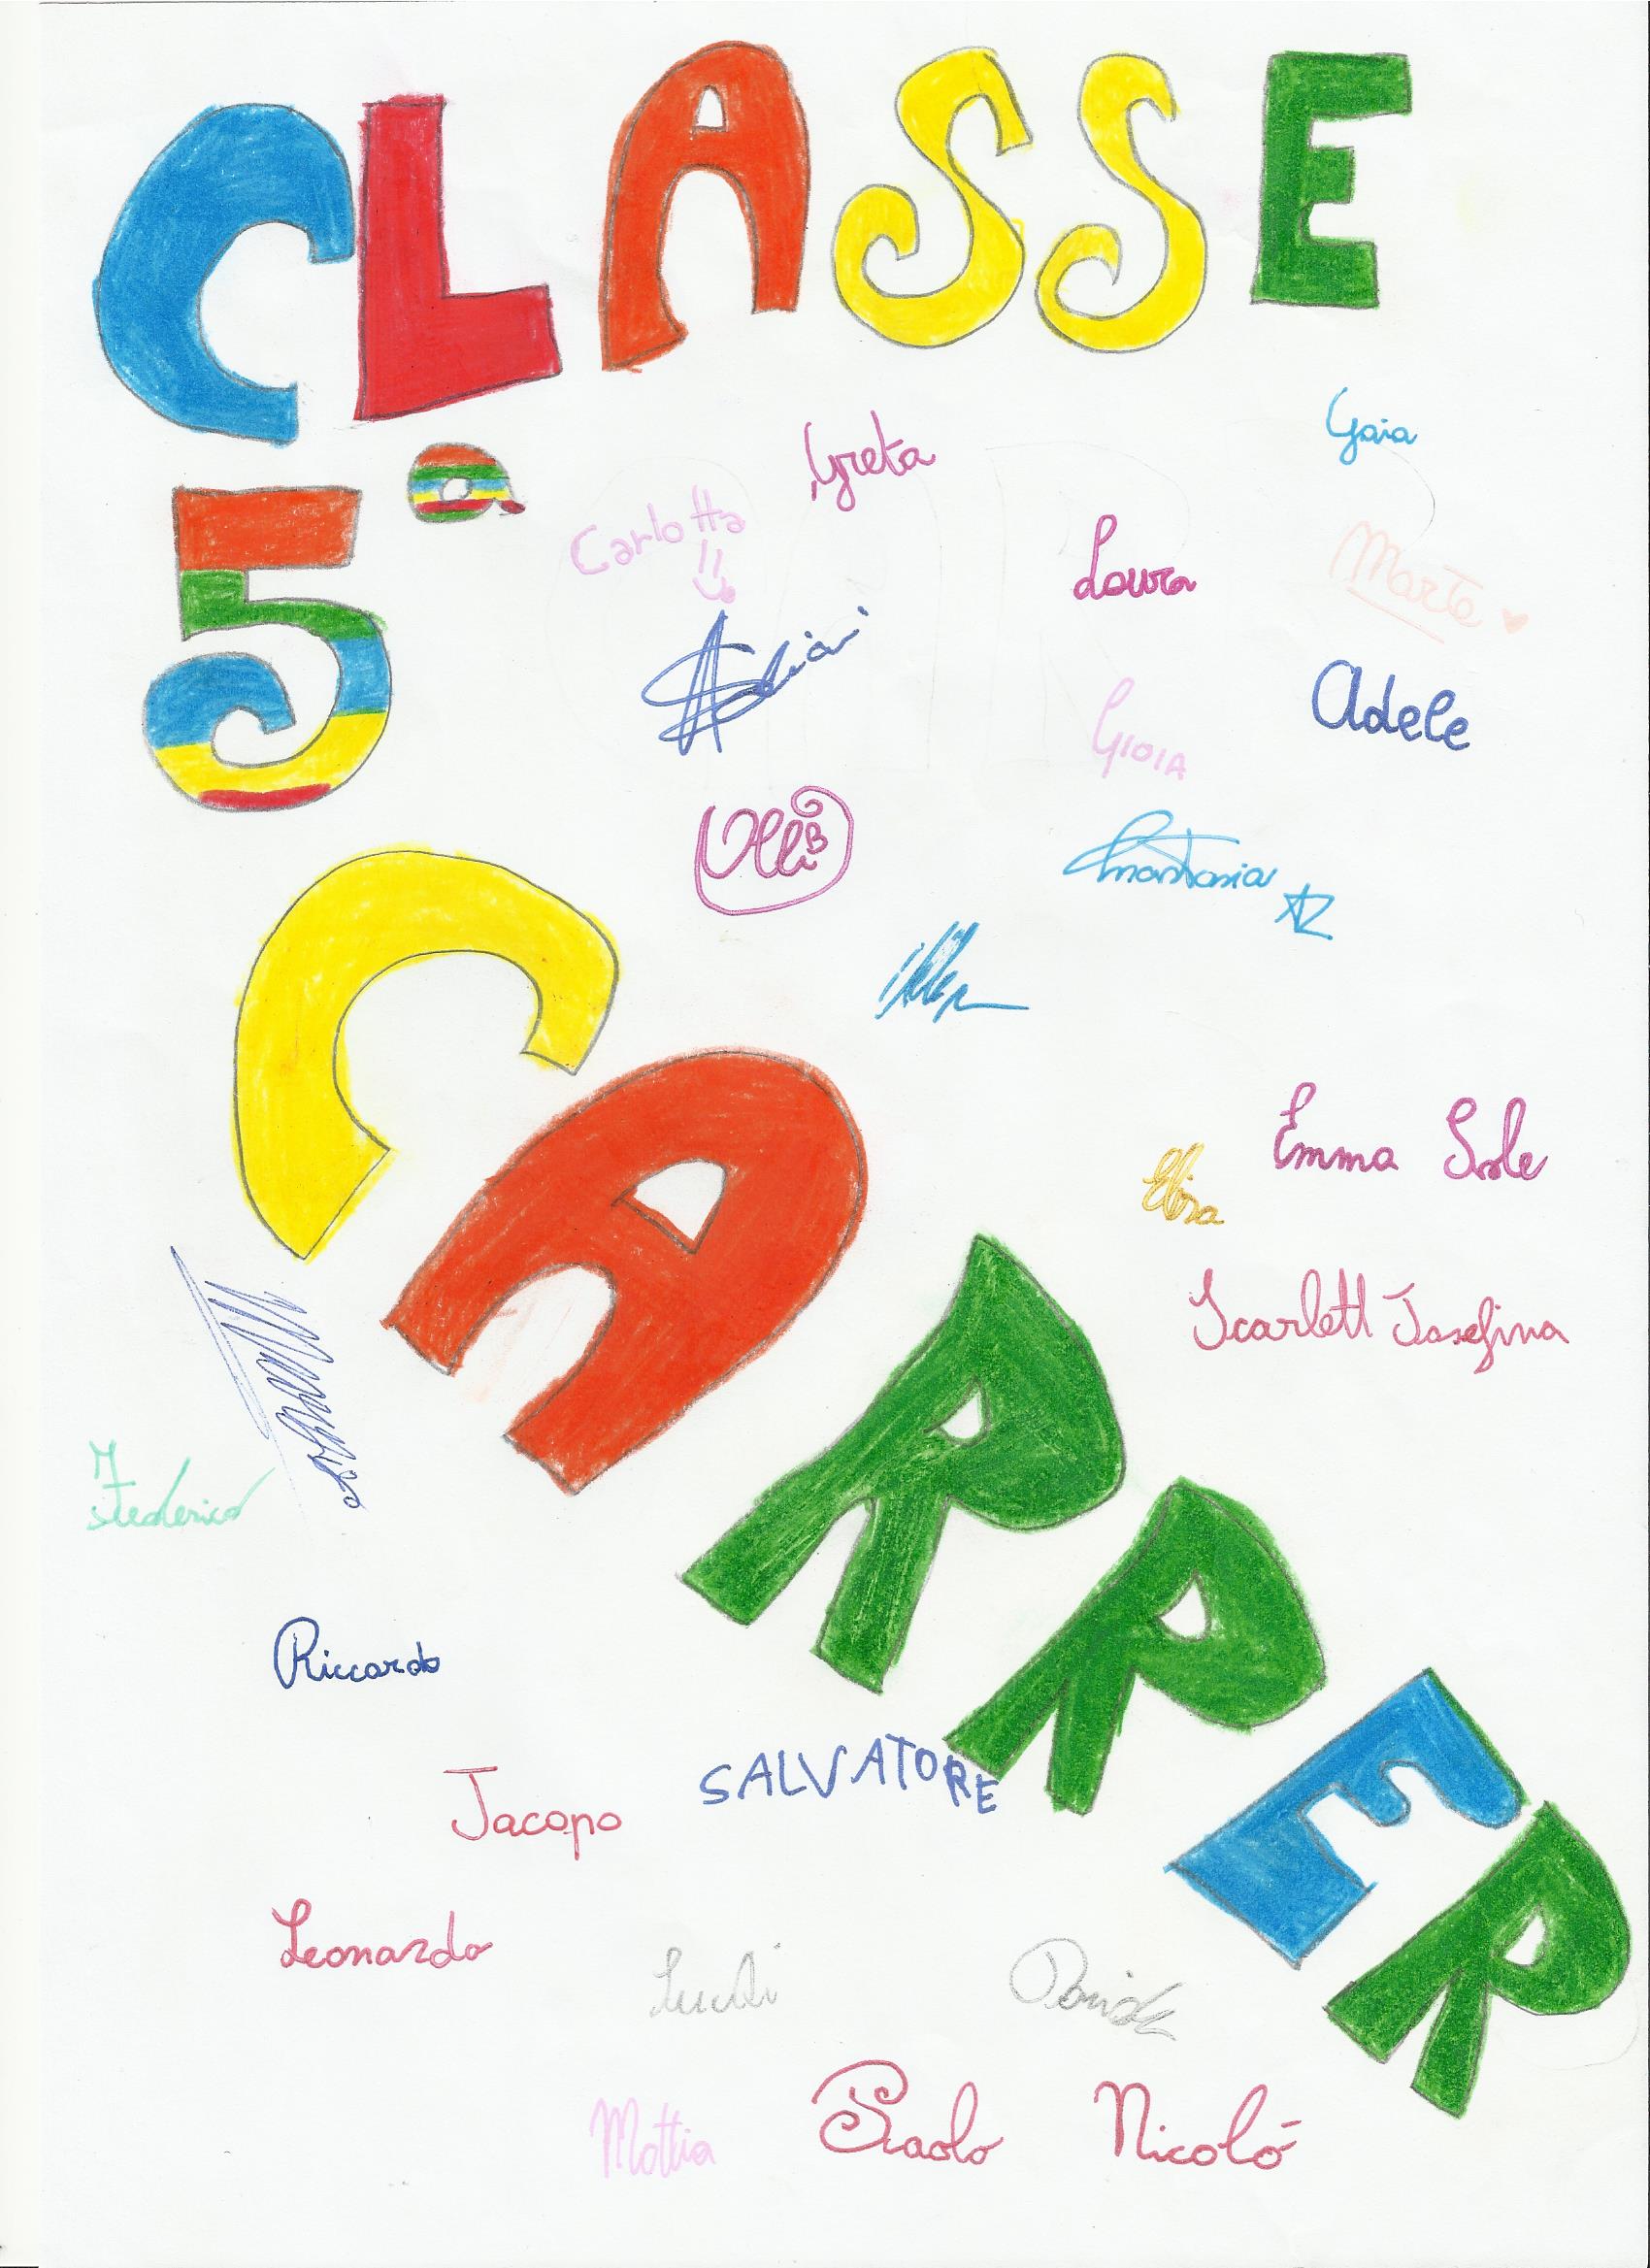 CLASSE
5ª
Greta
Gaia
Carlotta
Laura
Marta
Adele
GIOIA
Olli
Anastasia
CARRER
Emma Sole
Elisa
Scarlett Josefina
Federico
Riccardo
SALVATORE
Jacopo
Leonardo
Mattia
Paolo
Nicoló